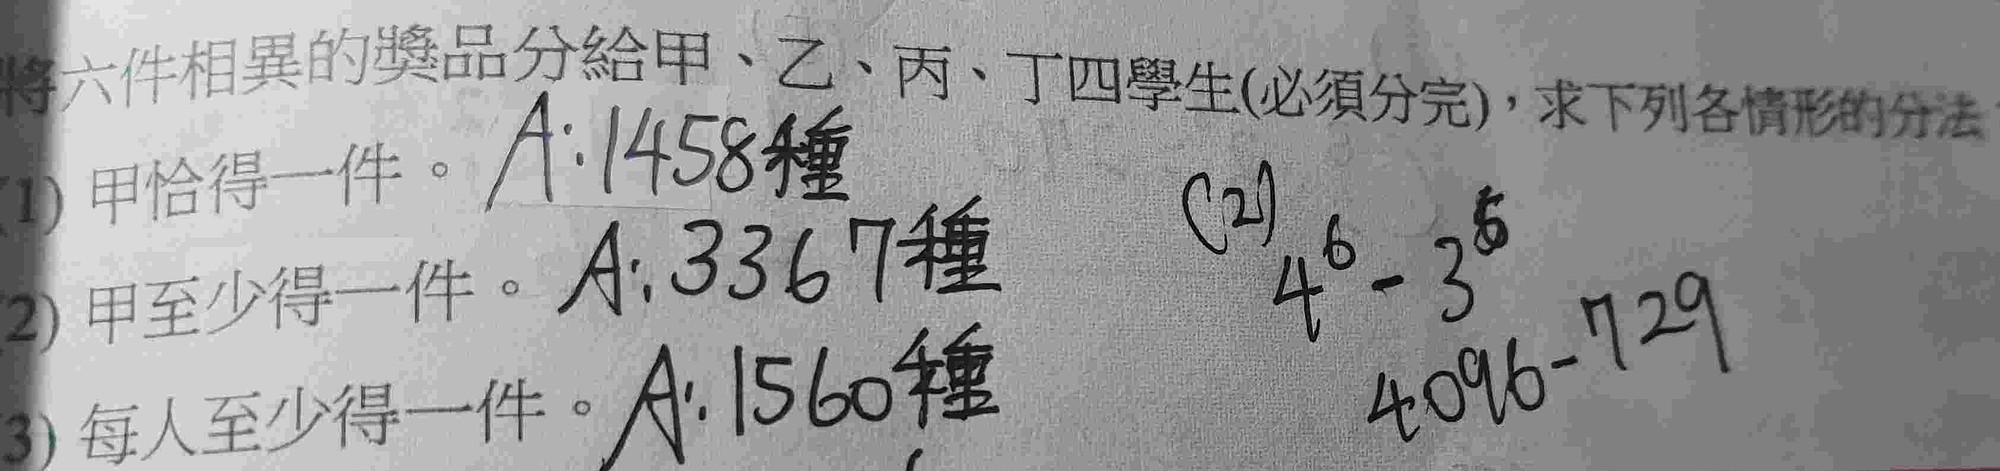 將六件相異的獎品分給甲、乙、丙、丁四學生(必須分完),求下列各情形的分法
(1) 甲恰得一件。 A:1458種
(2) 甲至少得一件。 A:3367種
(3) 每人至少得一件。 A:1560種
(2)
4⁶-3⁶
4096-729